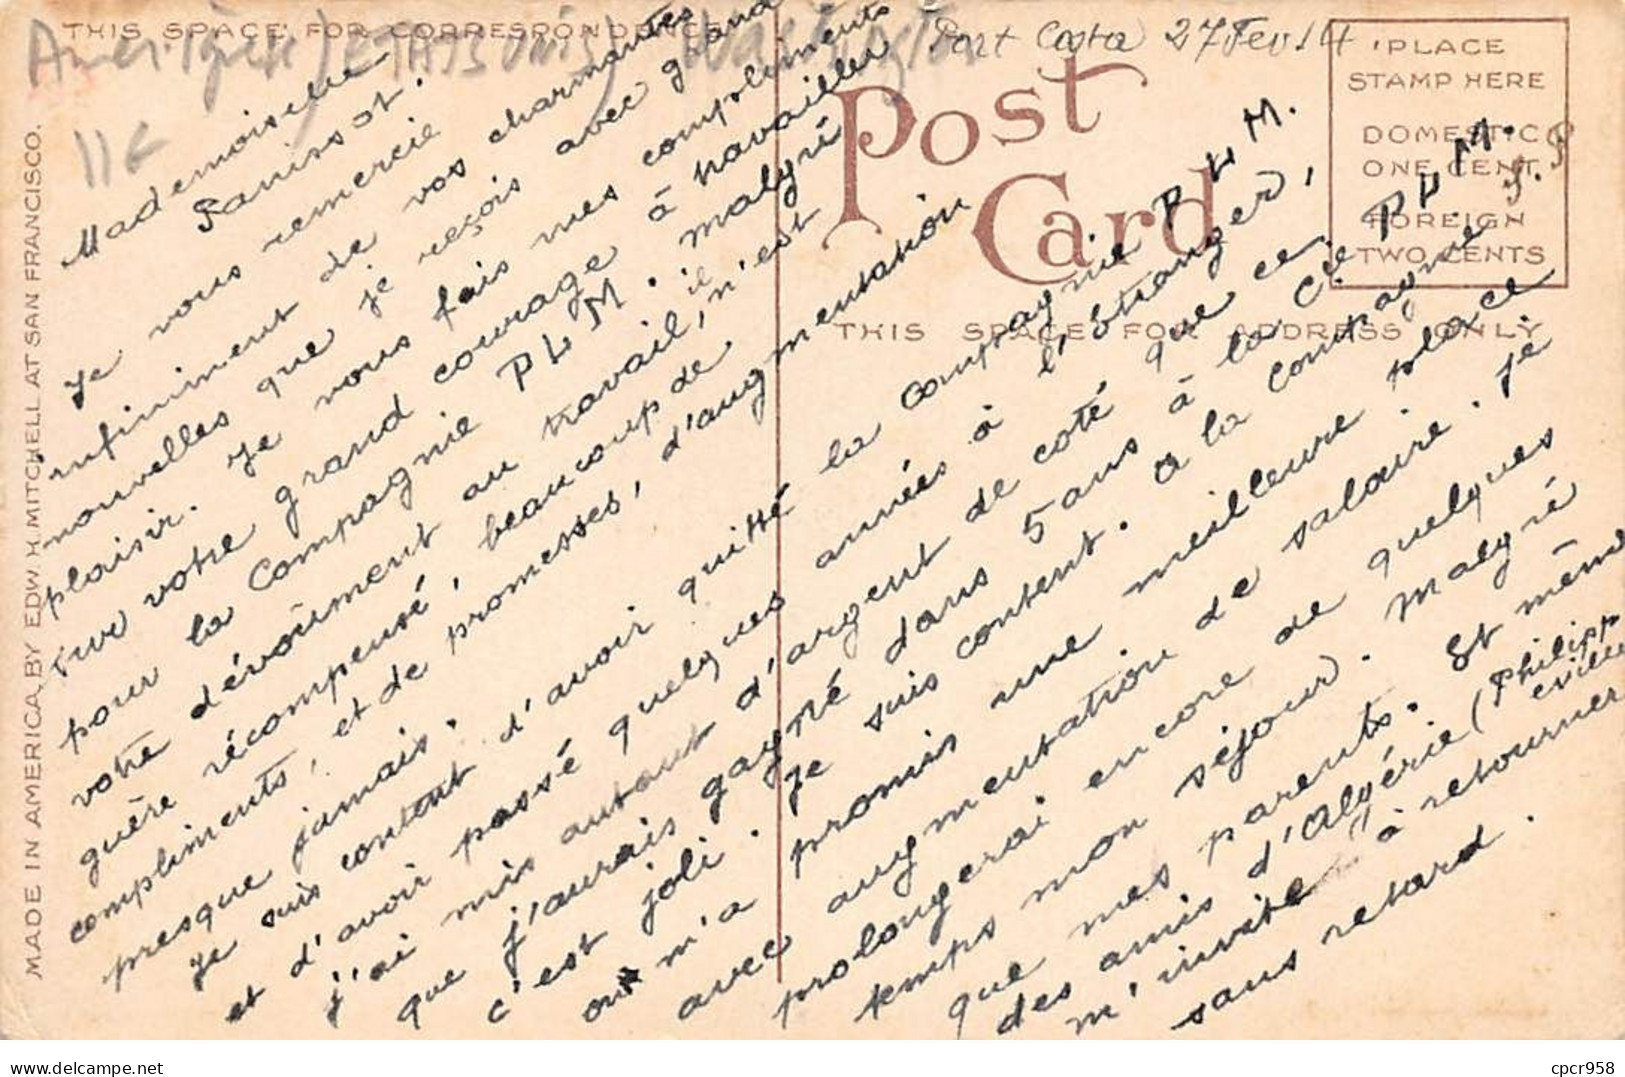 THIS SPACE FOR CORRESPONDENCE
Amérique / ETATS UNIS / Washington
11€
Port Costa 27 Fev 14
Post Card
PLACE
STAMP HERE
DOMESTIC
ONE CENT
FOREIGN
TWO CENTS
THIS SPACE FOR ADDRESS ONLY
MADE IN AMERICA BY EDW. H. MITCHELL AT SAN FRANCISCO.
Mademoiselle
Panissot.
Je vous remercie
infiniment de vos charmantes
nouvelles que je reçois avec grand
plaisir. Je vous fais mes compliments
sur votre grand courage à travailler
pour la Compagnie PLM. malgré
votre dévoûment au travail, il n'est
guère récompensé, beaucoup de
compliments, et de promesses, d'augmentation
presque jamais.
Je suis content d'avoir quitté la compagnie PLM.
et d'avoir passé quelques années à l'étranger,
j'ai mis autant d'argent de coté que ce
que j'aurais gagné dans 5 ans à la Cie PLM.
c'est joli. Je suis content. A la compagne S.P
on m'a promis une meilleure place
avec augmentation de salaire. Je
prolongerai encore de quelques
temps mon séjour. Malgré
que mes parents. Et même
des amis d'Algérie (Philipp
eville
m'invite à retourner
sans retard.
cpcr958